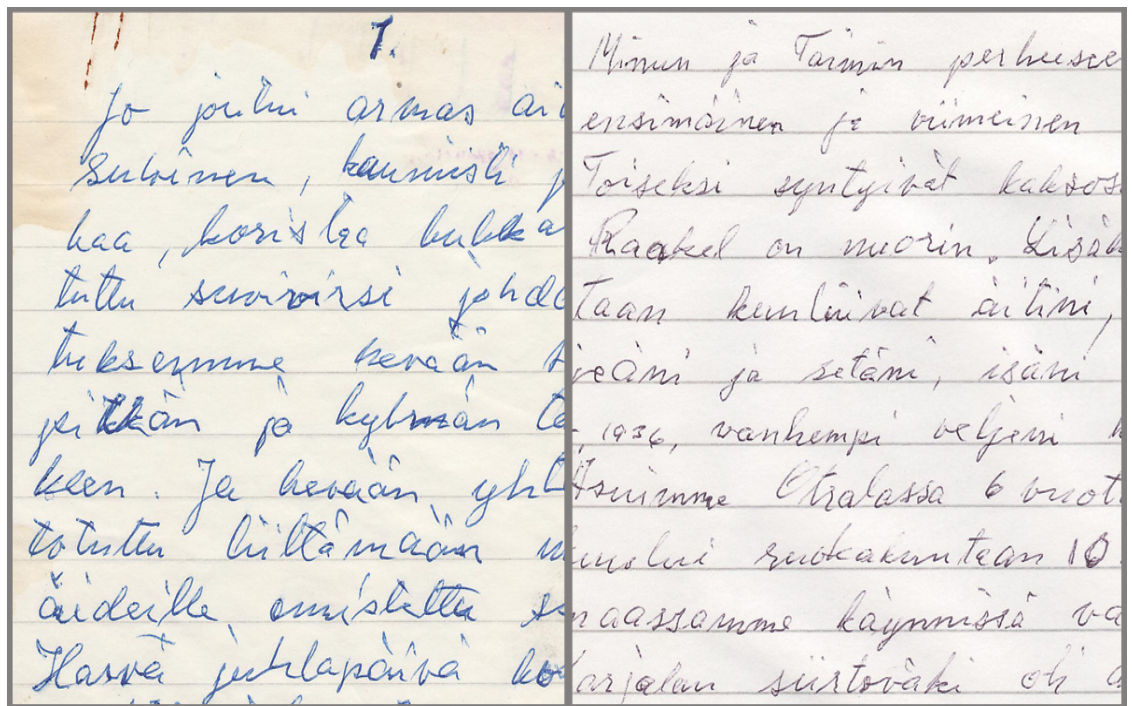 1.
Jo joutui armas ai
suloinen, kauniisti
haa, koristaa kukka
tuttu suvivirsi johda
tuksemme kevään
pitkän ja kylmän ta
keen. Ja kevään yht
totuttu liittämään
äideille omistettu
Harva juhlapäivä ko
Minun ja Taimin perheesee
ensimäinen ja viimeinen
Toiseksi syntyivät kaksos
Raakel on nuorin. Lisäk
taan kuuluivat äitini,
veäni ja setäni, isäni
1936, vanhempi veljeni
Asuimme Otralassa 6 vuot
kuului ruokakuntaan 10
maassamme käynnissä va
arjalan siirtoväki oli